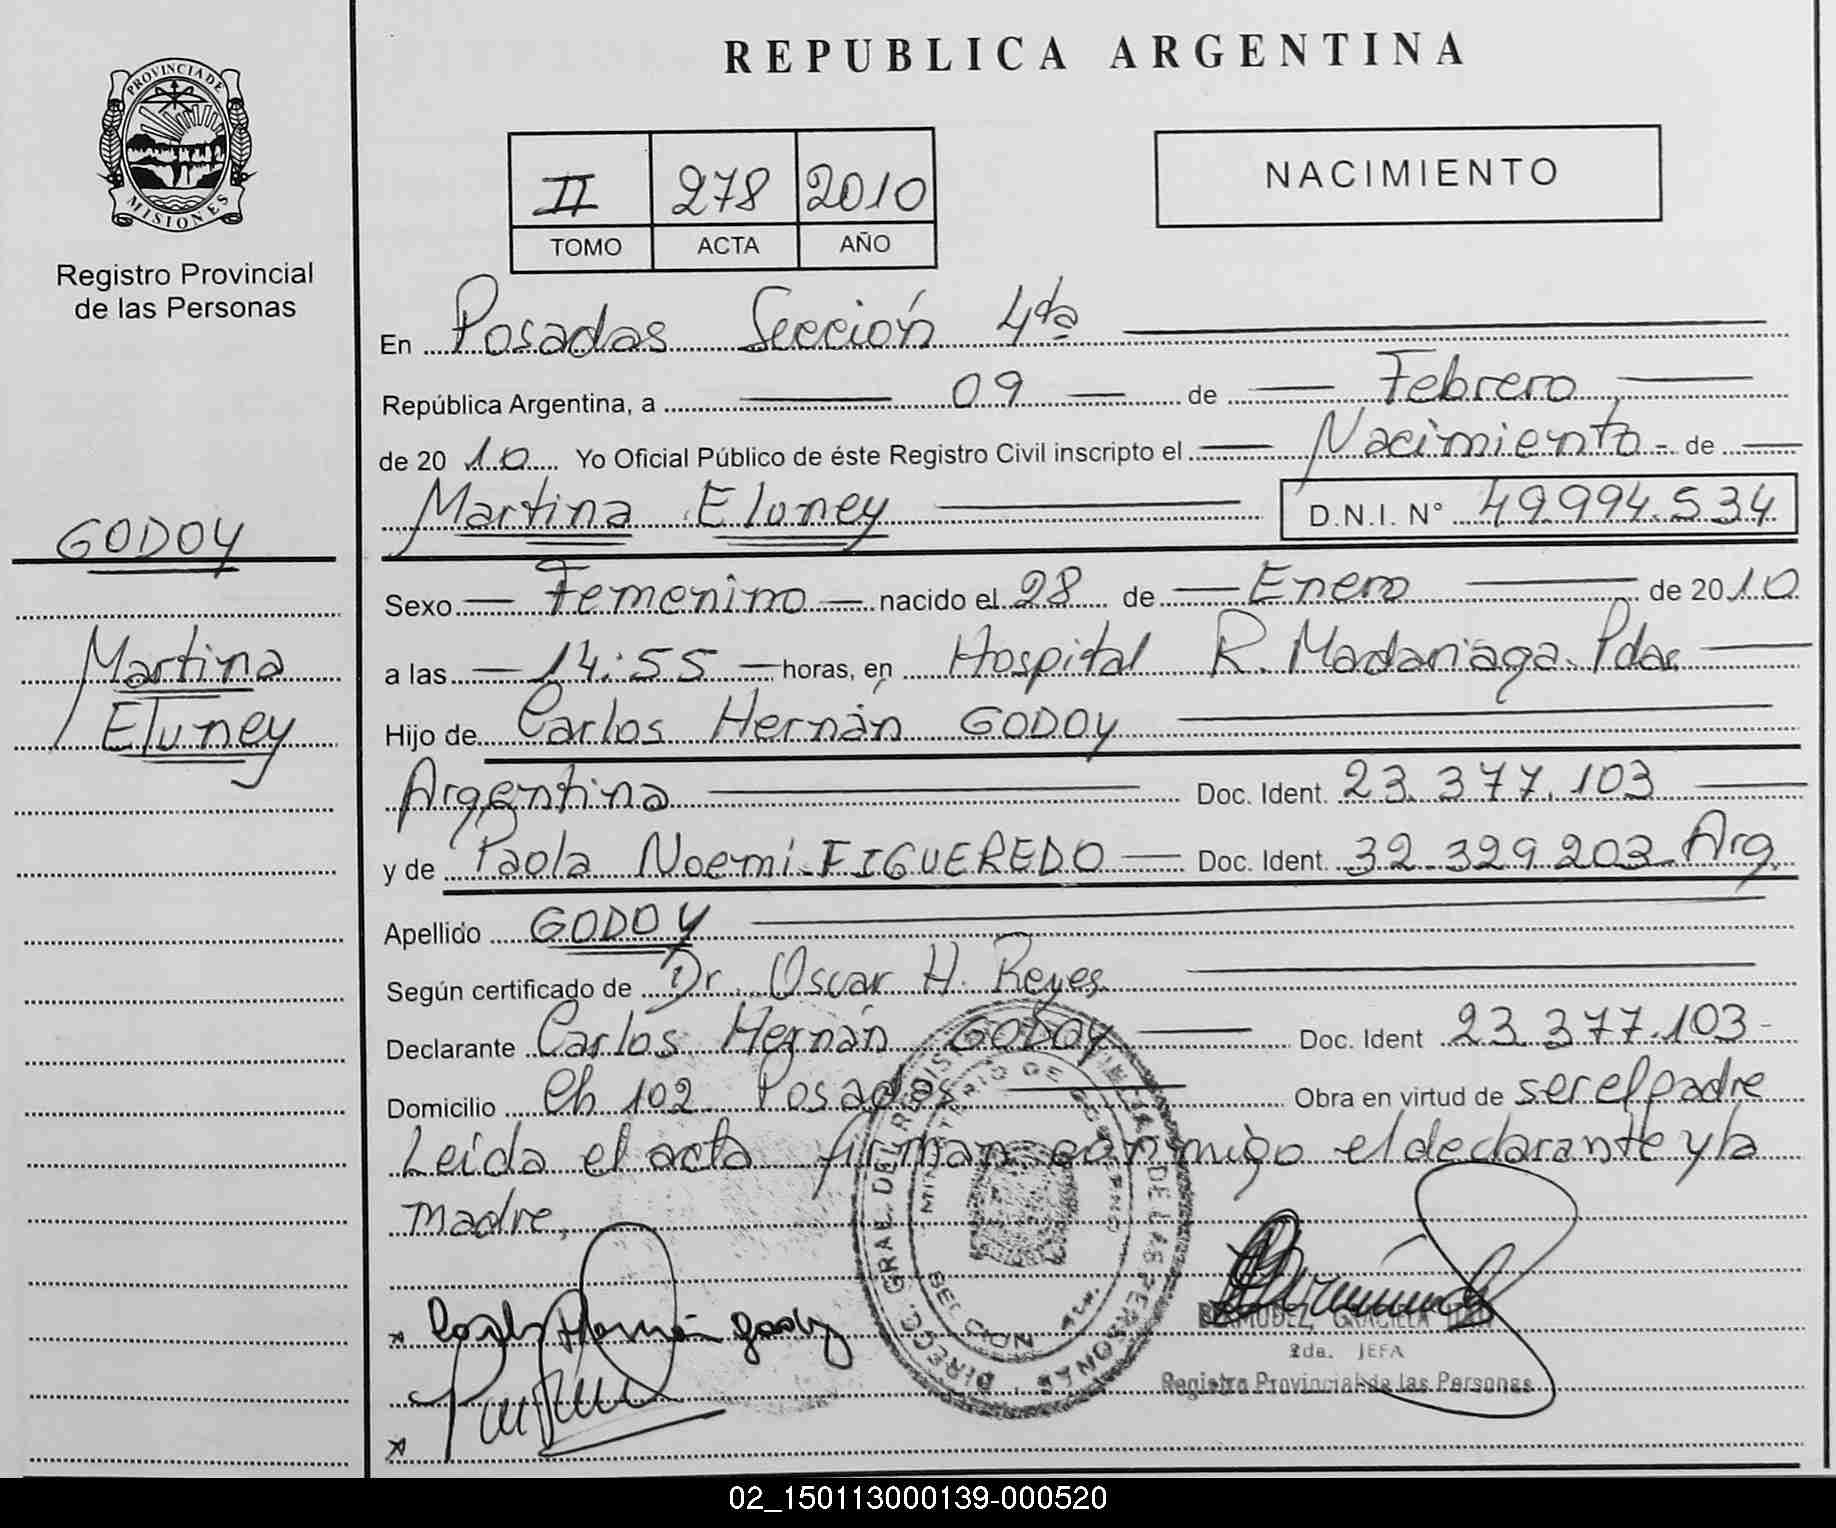 REPUBLICA ARGENTINA
PROVINCIA DE
MISIONES
Registro Provincial
de las Personas
NACIMIENTO
II 278 2010
TOMO ACTA AÑO
En Posadas Sección 4da
República Argentina, a 09 de Febrero
de 2010 Yo Oficial Público de éste Registro Civil inscripto el Nacimiento de
Martina Eluney D.N.I. N° 49.994.534
GODOY
Martina
Eluney
Sexo Femenino nacido el 28 de Enero de 2010
a las 14:55 horas, en Hospital R. Madariaga. Pdas
Hijo de Carlos Hernán GODOY
Argentina Doc. Ident. 23.377.103
y de Paola Noemi FIGUEREDO Doc. Ident. 32.329.203 Arg.
Apellido GODOY
Según certificado de Dr. Oscar H. Reyes
Declarante Carlos Hernán GODOY Doc. Ident 23.377.103
Domicilio Ch 102 Posadas Obra en virtud de ser el padre
Leida el acta firman conmigo el declarante y la
madre,
DIRECC. GRAL. DEL REGISTRO PROVINCIAL DE LAS PERSONAS
MINISTERIO DE GOBIERNO
SECCION
Carlos Hernán Godoy
BERMUDEZ, GRACIELA
2da. JEFA
Registro Provincial de las Personas
02_150113000139-000520